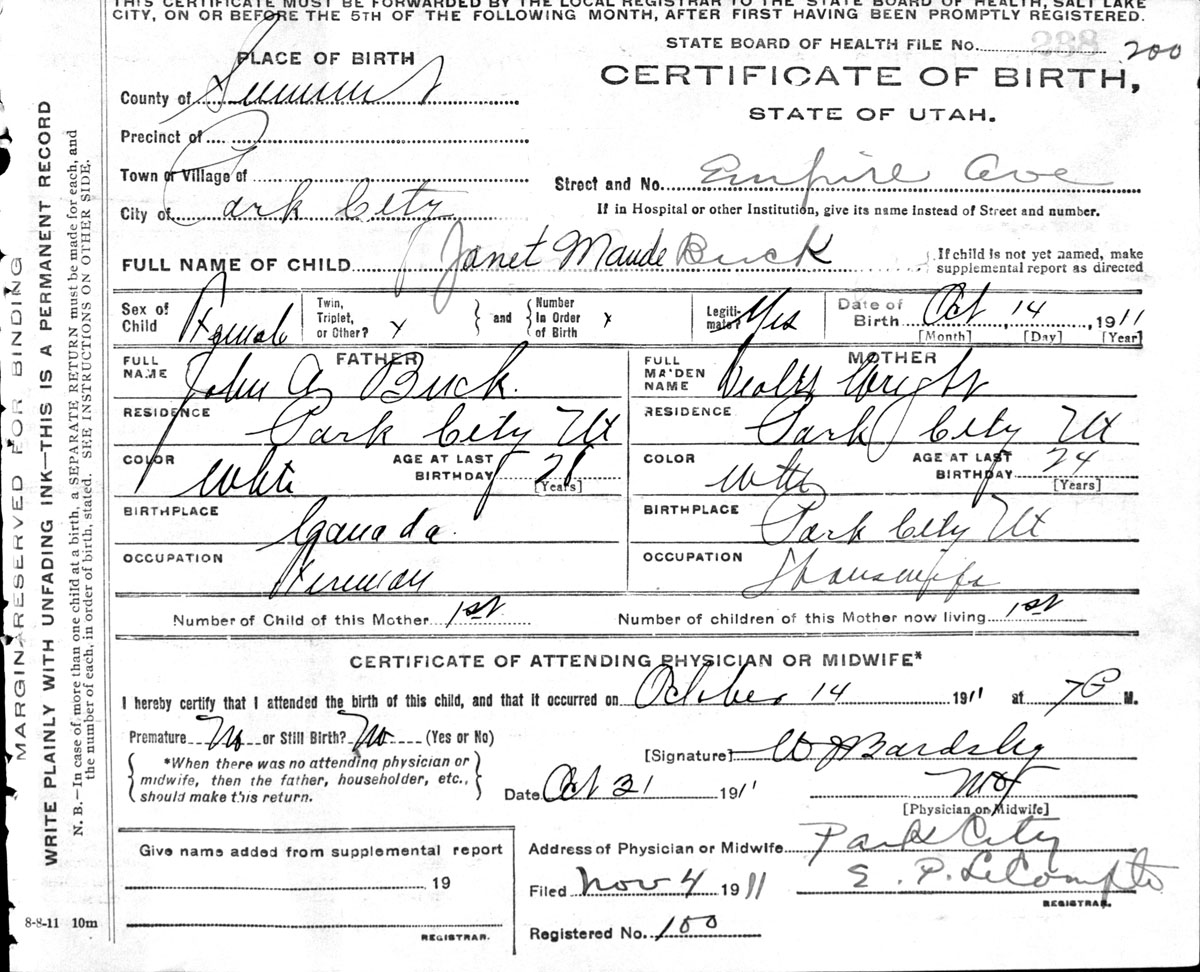 THIS CERTIFICATE MUST BE FORWARDED BY THE LOCAL REGISTRAR TO THE STATE BOARD OF HEALTH, SALT LAKE
CITY, ON OR BEFORE THE 5TH OF THE FOLLOWING MONTH, AFTER FIRST HAVING BEEN PROMPTLY REGISTERED.
STATE BOARD OF HEALTH FILE NO. 288 200
PLACE OF BIRTH
CERTIFICATE OF BIRTH,
STATE OF UTAH.
County of Summit
Precinct of
Town or Village of
Street and No. Empire Ave
City of Park City
If in Hospital or other Institution, give its name instead of Street and number.
FULL NAME OF CHILD Janet Maude Buck
If child is not yet named, make
supplemental report as directed
Sex of Child Female
Twin, Triplet, or Other? x
and
Number in Order of Birth x
Legitimate? Yes
Date of Birth Oct 14, 1911
[Month] [Day] [Year]
FATHER
MOTHER
FULL NAME John A Buck.
FULL MAIDEN NAME Wright
RESIDENCE Park City Ut
RESIDENCE Park City Ut
COLOR White AGE AT LAST BIRTHDAY 28 [Years]
COLOR White AGE AT LAST BIRTHDAY 24 [Years]
BIRTHPLACE Canada.
BIRTHPLACE Park City Ut
OCCUPATION Fireman
OCCUPATION Housewife
Number of Child of this Mother 1st
Number of children of this Mother now living 1st
CERTIFICATE OF ATTENDING PHYSICIAN OR MIDWIFE*
I hereby certify that I attended the birth of this child, and that it occurred on October 14 1911 at 7 P M.
Premature No or Still Birth? No (Yes or No)
[Signature] W J Bardsley
*When there was no attending physician or
midwife, then the father, householder, etc.,
should make this return.
Date Oct 21 1911
MD
[Physician or Midwife]
Give name added from supplemental report
19
REGISTRAR.
Address of Physician or Midwife Park City
Filed Nov 4 1911
E. P. LeCompte
REGISTRAR.
Registered No. 100
8-8-11 10m
MARGIN RESERVED FOR BINDING
WRITE PLAINLY WITH UNFADING INK—THIS IS A PERMANENT RECORD
N. B.—In case of more than one child at a birth, a SEPARATE RETURN must be made for each, and
the number of each, in order of birth, stated. SEE INSTRUCTIONS ON OTHER SIDE.